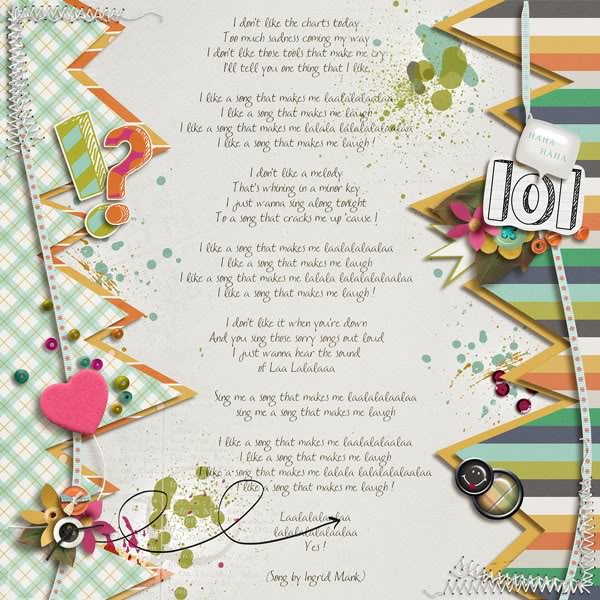 I don't like the charts today
Too much sadness coming my way
I don't like those tools that make me cry
I'll tell you one thing that I like
I like a song that makes me laalalalaalaa
I like a song that makes me laugh
I like a song that makes me lalala lalalalalalaalaa
I like a song that makes me laugh!
!?
HAHA
HAHA
lol
I don't like a melody
That's whining in a minor key
I just wanna sing along tonight
To a song that cracks me up 'cause!
I like a song that makes me laalalalaalaa
I like a song that makes me laugh
I like a song that makes me lalala lalalalalalaalaa
I like a song that makes me laugh!
I don't like it when you're down
And you sing those sorry songs out loud
I just wanna hear the sound
of Laa Lalalaaa
Sing me a song that makes me laalalalaalaa
sing me a song that makes me laugh
I like a song that makes me laalalalaalaa
I like a song that makes me laugh
I like a song that makes me lalala lalalalalalaalaa
I like a song that makes me laugh!
Laalalalaalaa
lalalalalalaalaa
Yes!
(Song by Ingrid Mank)